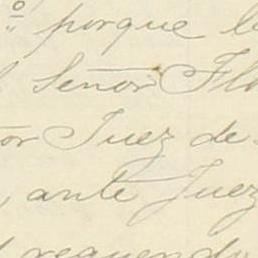 º porque l
Señor Fl
or Juez de
, ante Juez
requerido